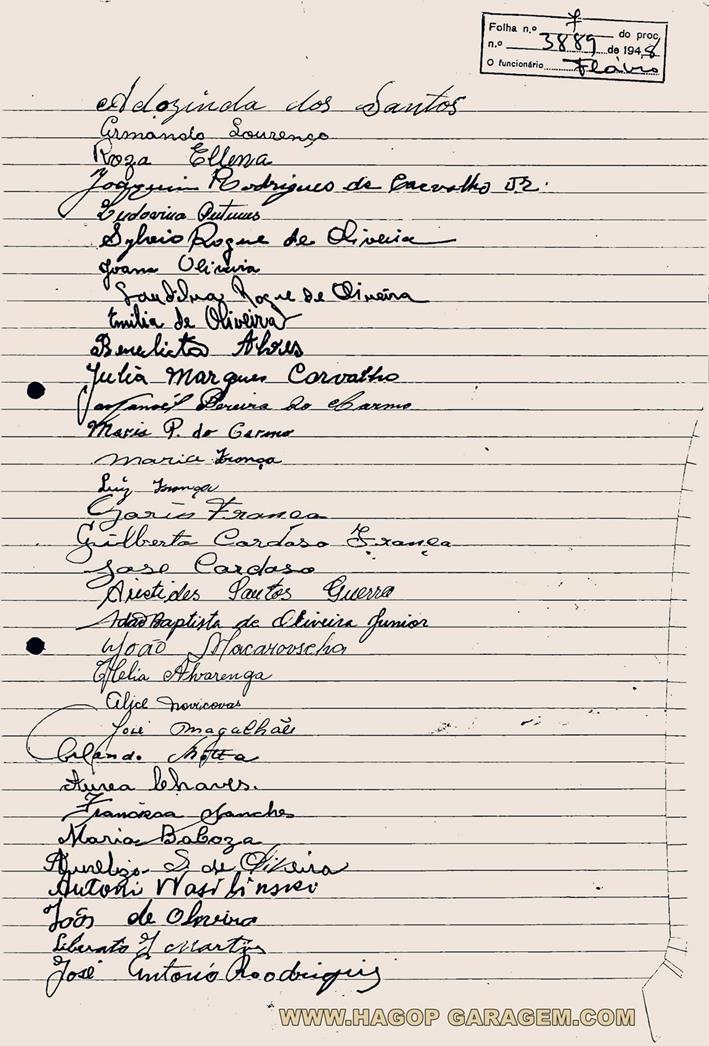 Folha n.º 7 do proc.
n.º 3889 de 1948
O funcionário Flávio
Adozinda dos Santos
Armando Lourenço
Roza Ellena
Joaquim Rodrigues de Carvalho Jr.
Ludovina Antunes
Sylvio Roque de Oliveira
Joana Oliveira
Roque de Oliveira
Emilia de Oliveira
Benedicto Alves
Julia Marques Carvalho
Pereira do Carmo
Maria P. do Carmo
Maria França
Luiz França
França
Gilberto Cardoso França
José Cardoso
Aristides Santos Guerra
Adão Baptista de Oliveira Junior
João Macarovscha
Ofelia Alvarenga
Alice Novicovas
José Magalhães
Orlando Motta
Aurea Chaves.
Francisca Sanches
Maria Baboza
S. de Oliveira
Antoni Wasilinskei
João de Oliveira
Liberato J Martins
José Antonio Roodrigues
WWW.HAGOP GARAGEM.COM